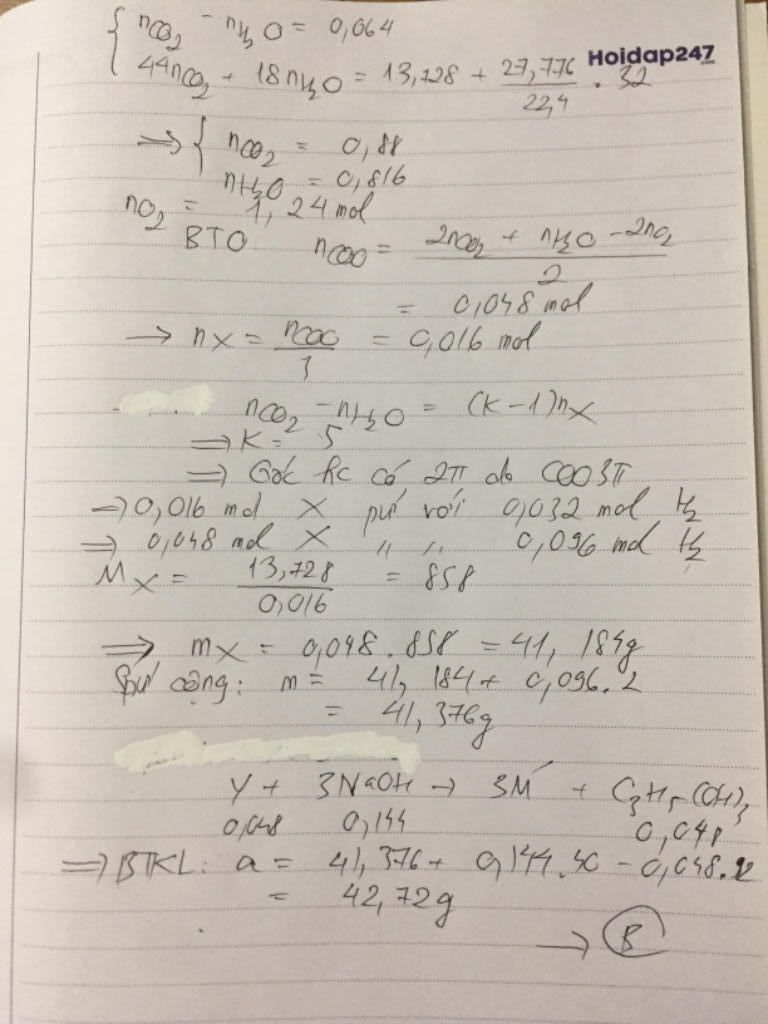 { nCO2 - nH2O = 0,064
Hoidap247
44nCO2 + 18nH2O = 13,728 + 27,776/22,4 . 32
=> { nCO2 = 0,88
nH2O = 0,816
nO2 = 1,24 mol
BTO: nCOO = (2nCO2 + nH2O - 2nO2)/2
= 0,048 mol
→ nX = nCOO/3 = 0,016 mol
nCO2 - nH2O = (k-1)nX
=> K = 5
=> Gốc hc có 2π do COO 3π
=> 0,016 mol X pứ với 0,032 mol H2
=> 0,048 mol X " " 0,096 mol H2
MX = 13,728/0,016 = 858
=> mX = 0,048.858 = 41,184g
Spứ cộng: m = 41,184 + 0,096.2
= 41,376g
Y + 3NaOH → 3M + C3H5(OH)3
0,048 0,144 0,048
=> BTKL: a = 41,376 + 0,144.40 - 0,048.92
= 42,72g
→ B